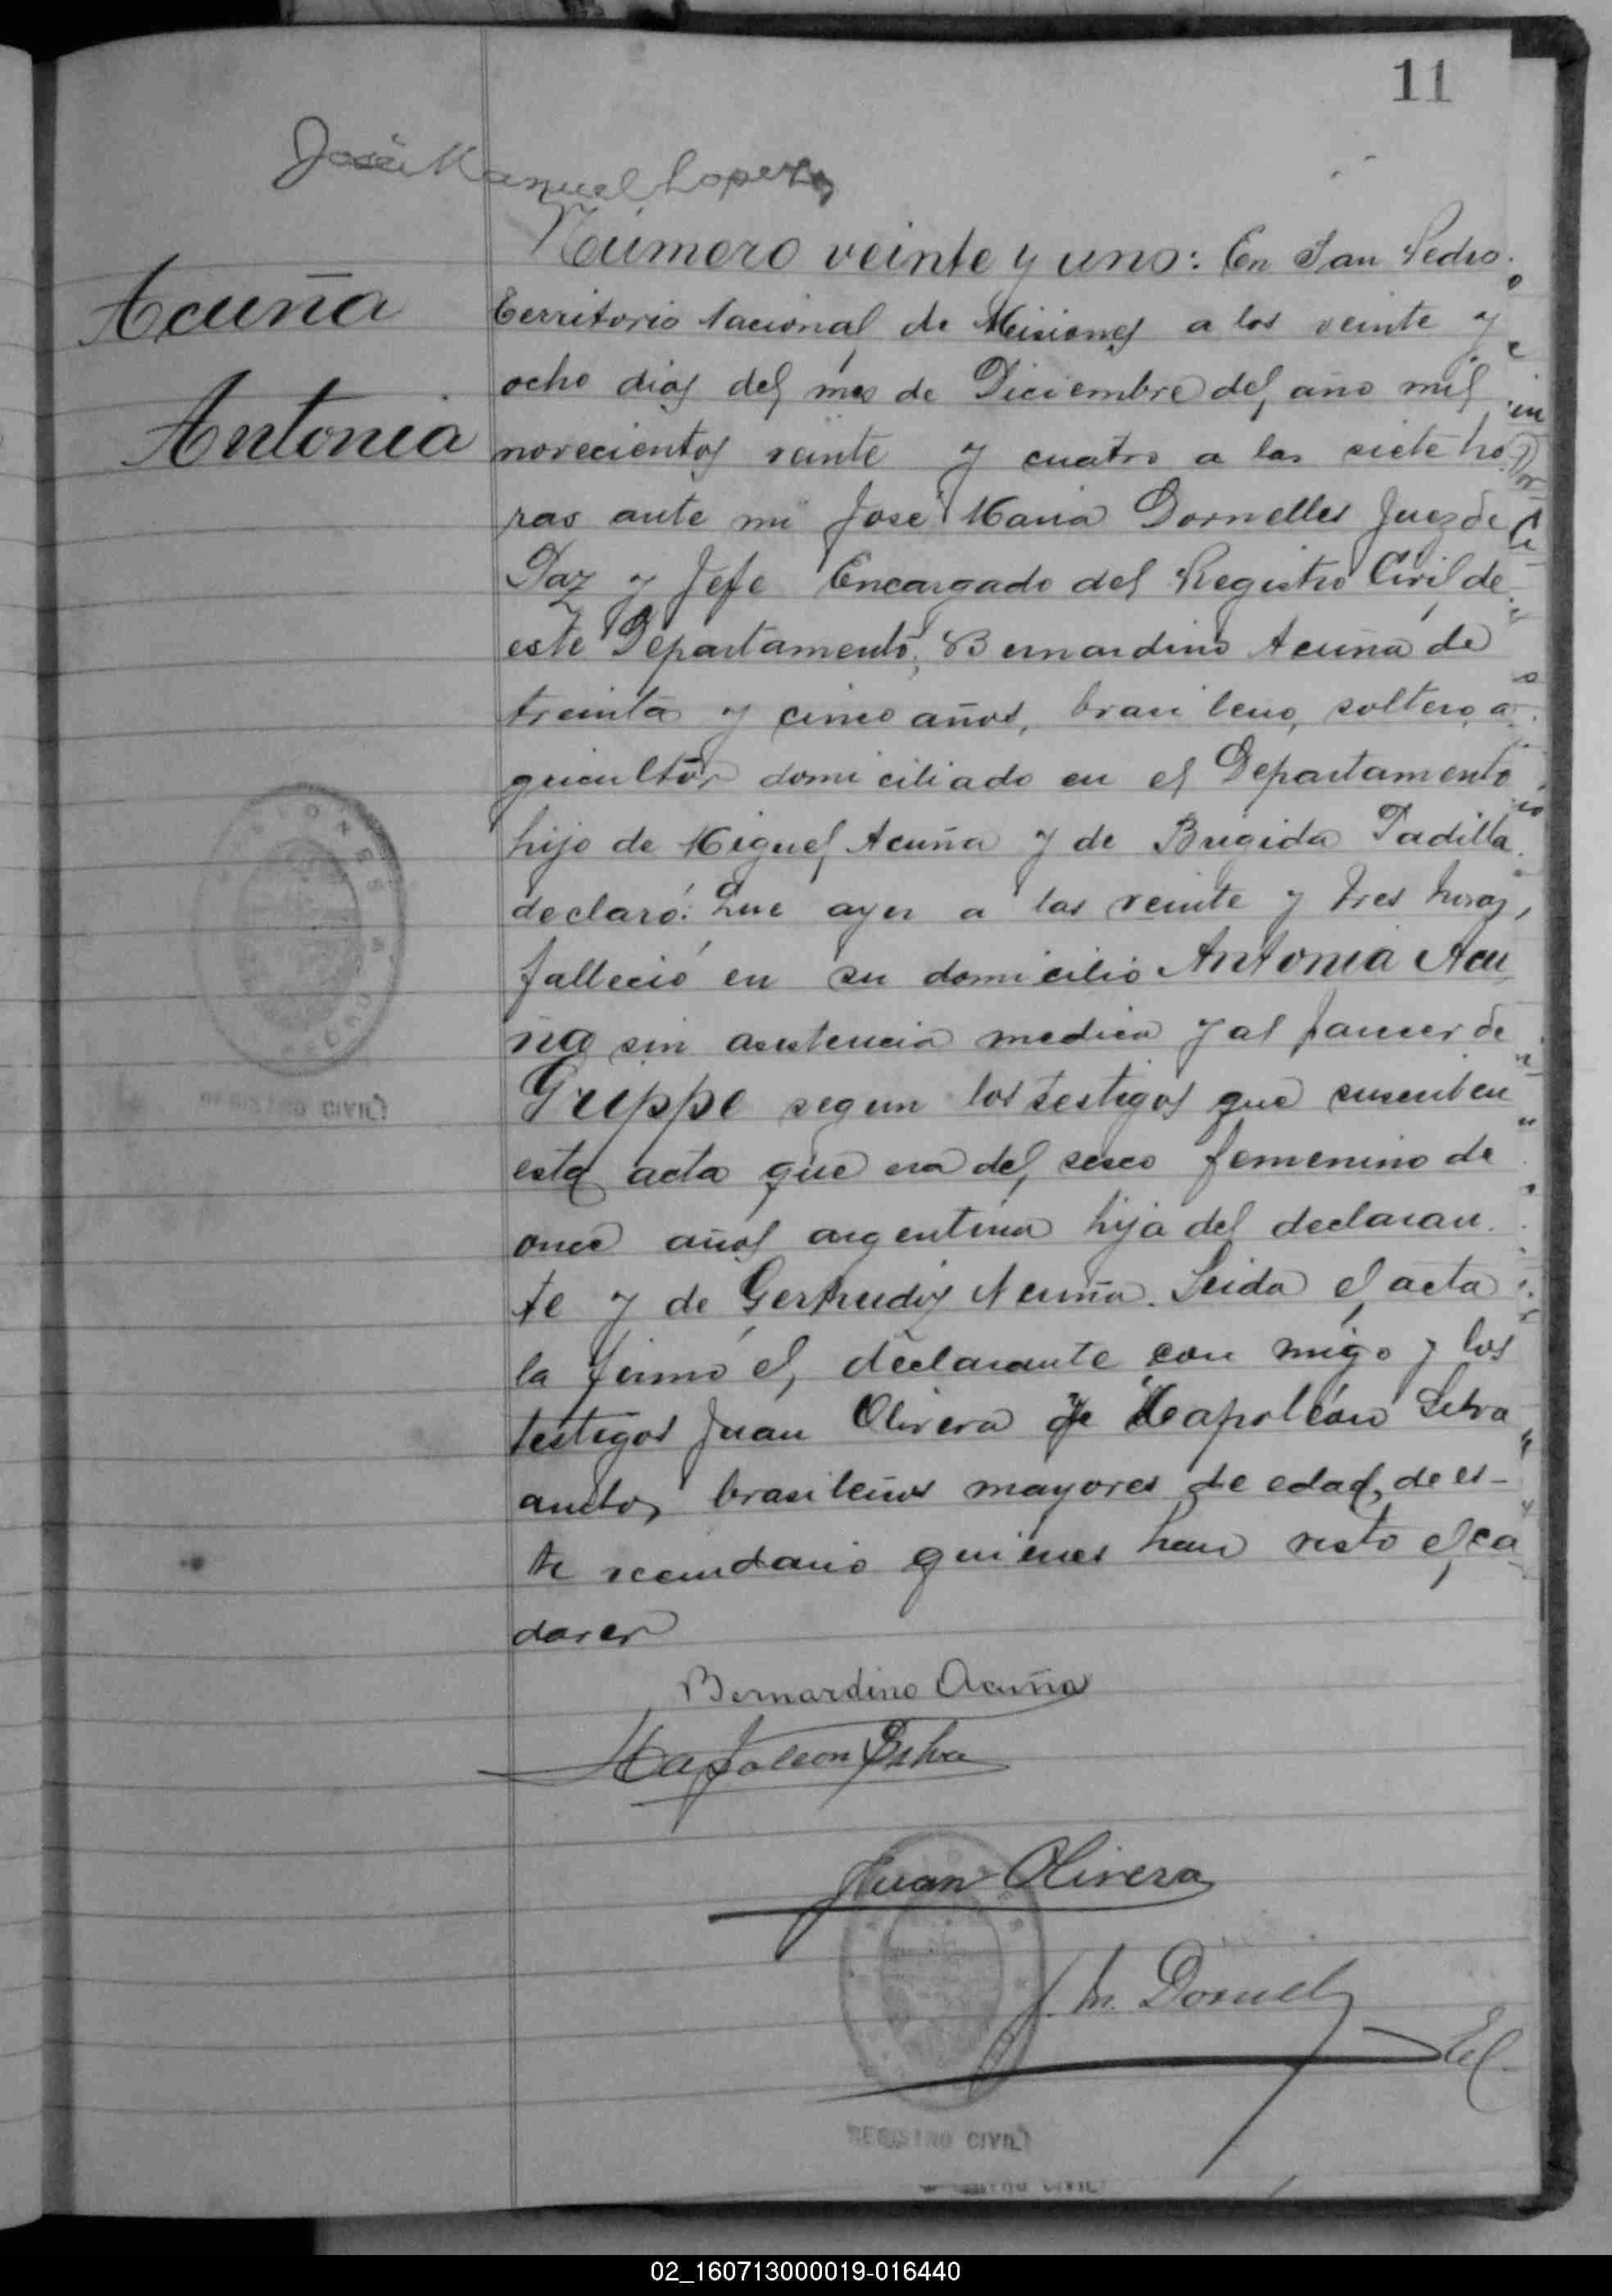 11
José Manuel Lopez
Número veinte y uno: En San Pedro
Acuña
Territorio Nacional de Misiones a los veinte y
ocho dias del mes de Diciembre del año mil
Antonia
novecientos veinte y cuatro a las siete ho
ras ante mi José Maria Dornelles Juez de
Paz y Jefe Encargado del Registro Civil de
este Departamento, Bernardino Acuña de
treinta y cinco años, brasileno, soltero, a
gricultor domiciliado en el Departamento
hijo de Miguel Acuña y de Brigida Padilla
declaró: Que ayer a las veinte y tres horas,
falleció en su domicilio Antonia Acu
ña sin asistencia medica y al parecer de
Grippe segun los testigos que suscriben
esta acta que era del sexo femenino de
once años argentina hija del declaran
te y de Gertrudis Acuña. Leida el acta
la firmó el declarante con migo y los
testigos Juan Olivera y Napoleón Silva
ambos brasileños mayores de edad, de es-
te vecindario quienes han visto el ca
daver
Bernardino Acuña
Napoleon Silva
Juan Olivera
J. M. Dornell
MISIONES
REGISTRO CIVIL
REGISTRO CIVIL
02_160713000019-016440